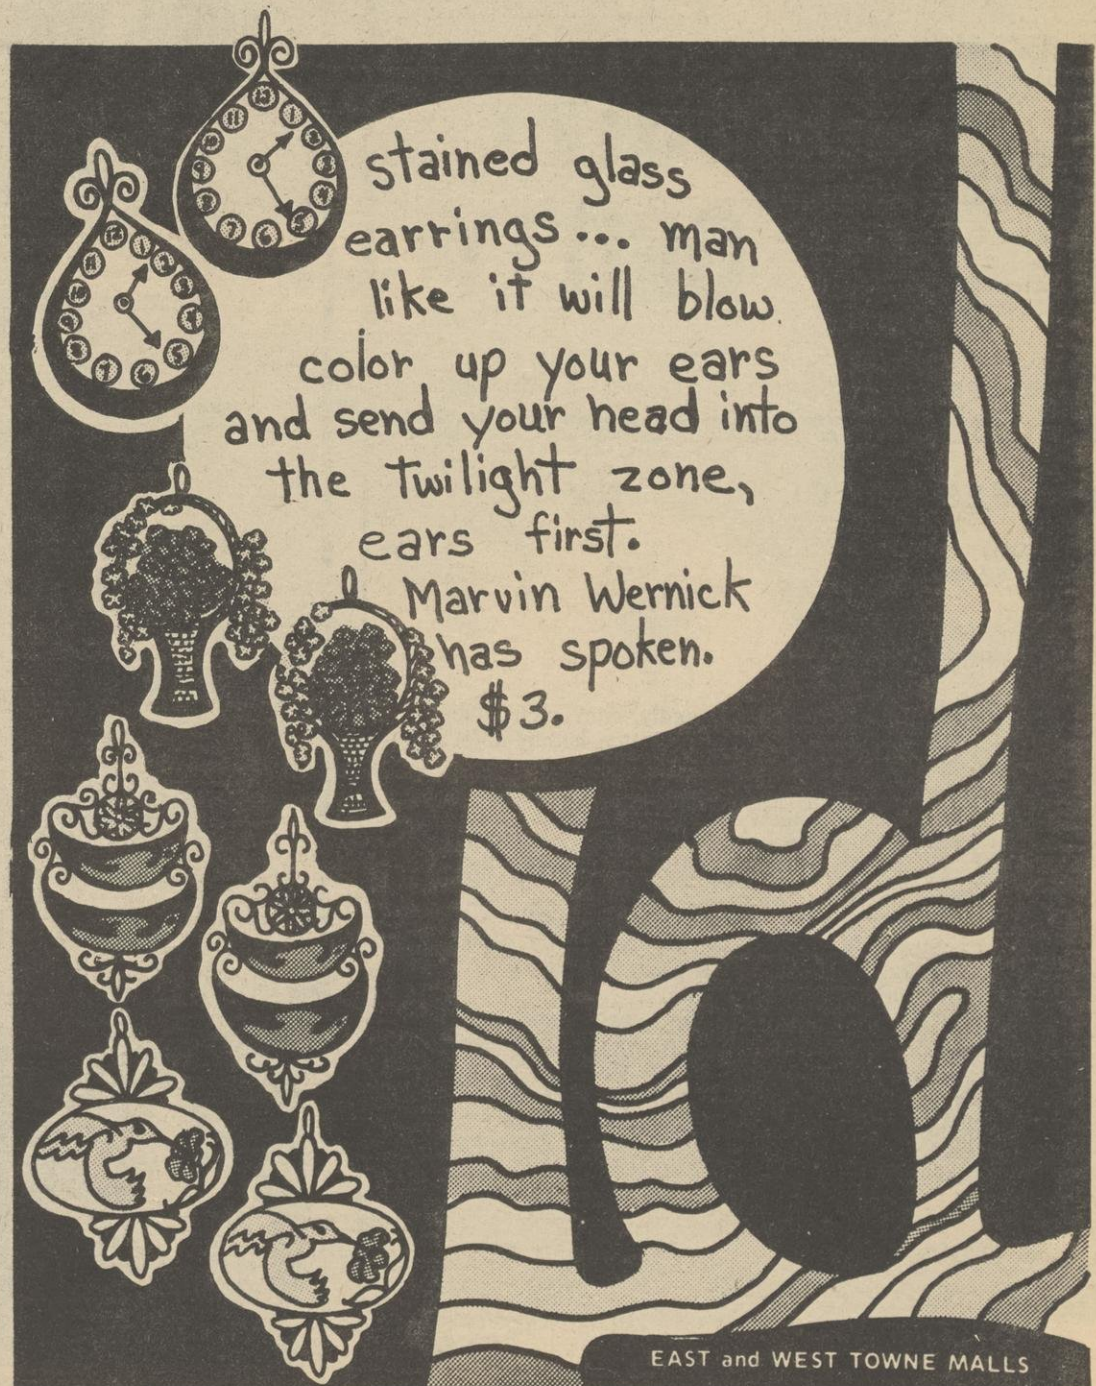 stained glass
earrings... man
like it will blow
color up your ears
and send your head into
the twilight zone,
ears first.
Marvin Wernick
has spoken.
$3.
id
EAST and WEST TOWNE MALLS